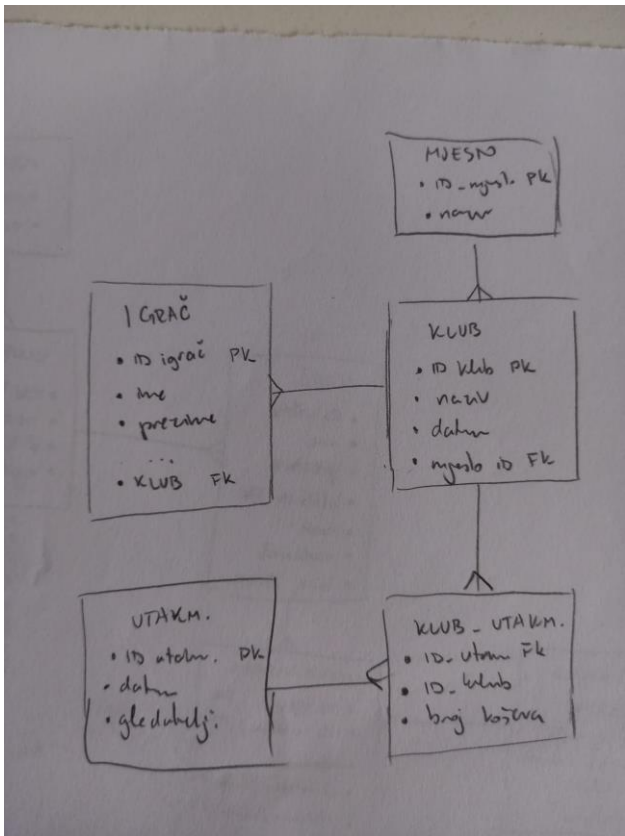 MJESTO
• ID_mjesto PK
• naziv
IGRAČ
• ID igrač PK
• ime
• prezime
...
• KLUB FK
KLUB
• ID klub PK
• naziv
• datum
• mjesto ID FK
UTAKM.
• ID utakm. PK
• datum
• gledatelj.
KLUB_UTAKM.
• ID_utakm FK
• ID_klub
• broj koševa